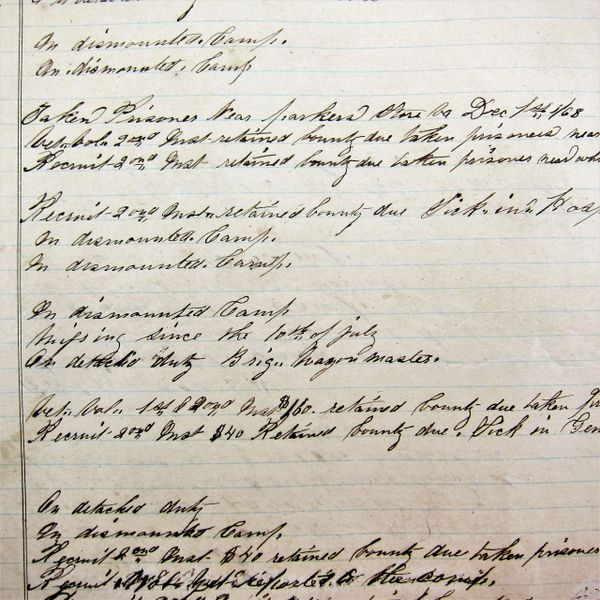 In dismounted Camp.
In dismounted. Camp
Taken Prisoner Near parkers Store Va Dec 1st, /68
Vet. Vol. 2nd Inst retained bounty due taken prisoners near
Recruit 2nd Inst retained bounty due taken prisoner near
Recruit 2nd Inst. retained bounty due Sick in Hosp
In dismounted. Camp.
In dismounted. Camp.
In dismounted Camp
Missing since the 10th of july
On detach'd duty Brig. Wagon master.
Vet. Vol. 1st & 2nd Inst $160. retained bounty due taken
Recruit 2nd Inst $40 Retained bounty due. Sick in Gen
On detached duty
In dismounted Camp.
Recruit 2nd Inst. $40 retained bounty due taken prisoner
Recruit reported to the comp.